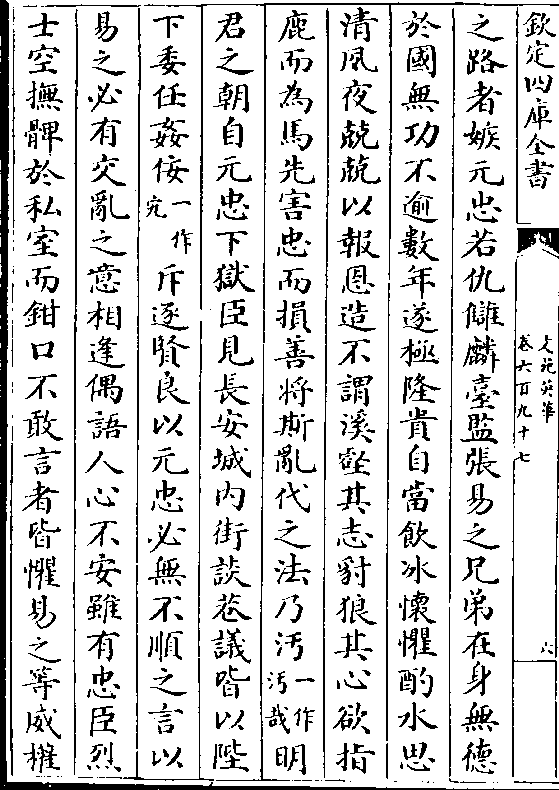 欽定四庫全書
文苑英華
卷六百九十七
六
之路者嫉元忠若仇讎麟臺監張易之兄弟在身無德
於國無功不逾數年遂極隆貴自當飲冰懷懼酌水思
清夙夜兢兢以報恩造不謂溪壑其志豺狼其心欲指
鹿而為馬先害忠而損善將斯亂代之法乃汚一作汚哉明
君之朝自元忠下獄臣見長安城内街談巷議皆以陛
下委任姦佞一作宄斥逐賢良以元忠必無不順之言以
易之必有交亂之意相逢偶語人心不安雖有忠臣烈
士空撫髀於私室而鉗口不敢言者皆懼易之等威權